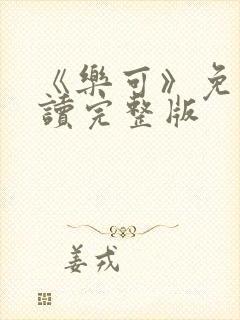 《樂可》免
讀完整版
姜戎